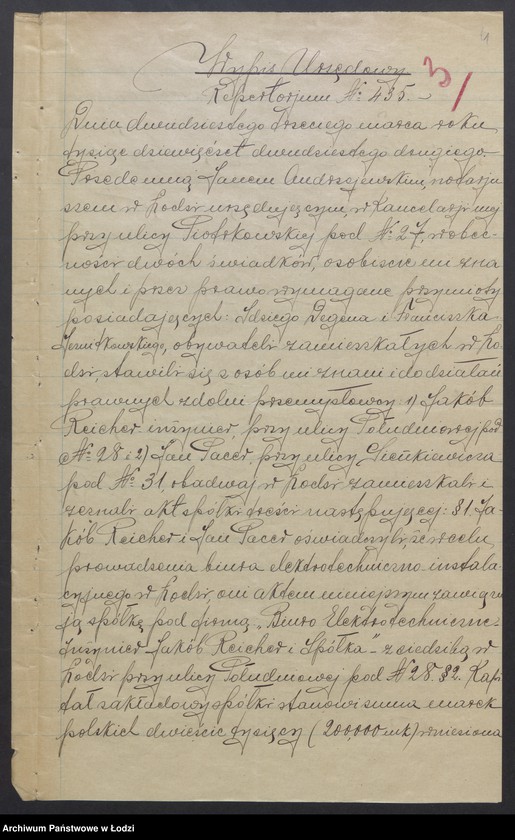 4
Wypis Urzędowy
3/
Repertorjum № 435.
Dnia dwudziestego trzeciego marca roku
tysiąc dziewięćset dwudziestego drugiego
Przedemną Janem Andrzejewskim, notarju
szem w Łodzi urzędującym, w Kancelarji mej
przy ulicy Piotrkowskiej pod № 27, w obec-
ności dwóch świadków, osobiście mi zna
nych i przez prawo wymagane przymioty
posiadających: Idziego Degena i Franciszka
obywateli zamieszkałych w Ło
dzi, stawili się z osób mi znani i do działań
prawnych zdolni przemysłowcy: 1) Jakób
Reicher inżynier, przy ulicy Południowej pod
№ 28 i 2) Jan Pacer, przy ulicy Sienkiewicza
pod № 31, obadwaj w Łodzi zamieszkali i
zeznali akt spółki treści następującej: §1. Ja-
kób Reicher i Jan Pacer oświadczyli, że w celu
prowadzenia biura elektrotechniczno-instala
cyjnego w Łodzi, oni aktem niniejszym zawiązu
ją spółkę pod firmą „Biuro Elektrotechniczne-
Inżynier Jakób Reicher i Spółka" z siedzibą w
Łodzi przy ulicy Południowej pod № 28. §2. Kapi
tał zakładowy spółki stanowi suma marek
polskich dwieście tysięcy (200,000 mk) wniesiona
Archiwum Państwowe w Łodzi